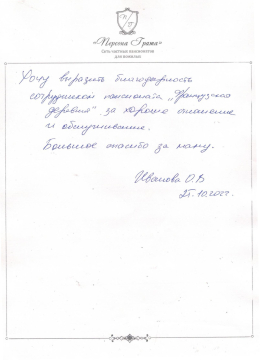 «Персона Грата»
Сеть частных пансионатов
для пожилых
Хочу выразить благодарность
сотрудникам пансионата „Французская
деревня" за хорошее отношение
и обслуживание.
Большое спасибо за маму.
Иванова О.В